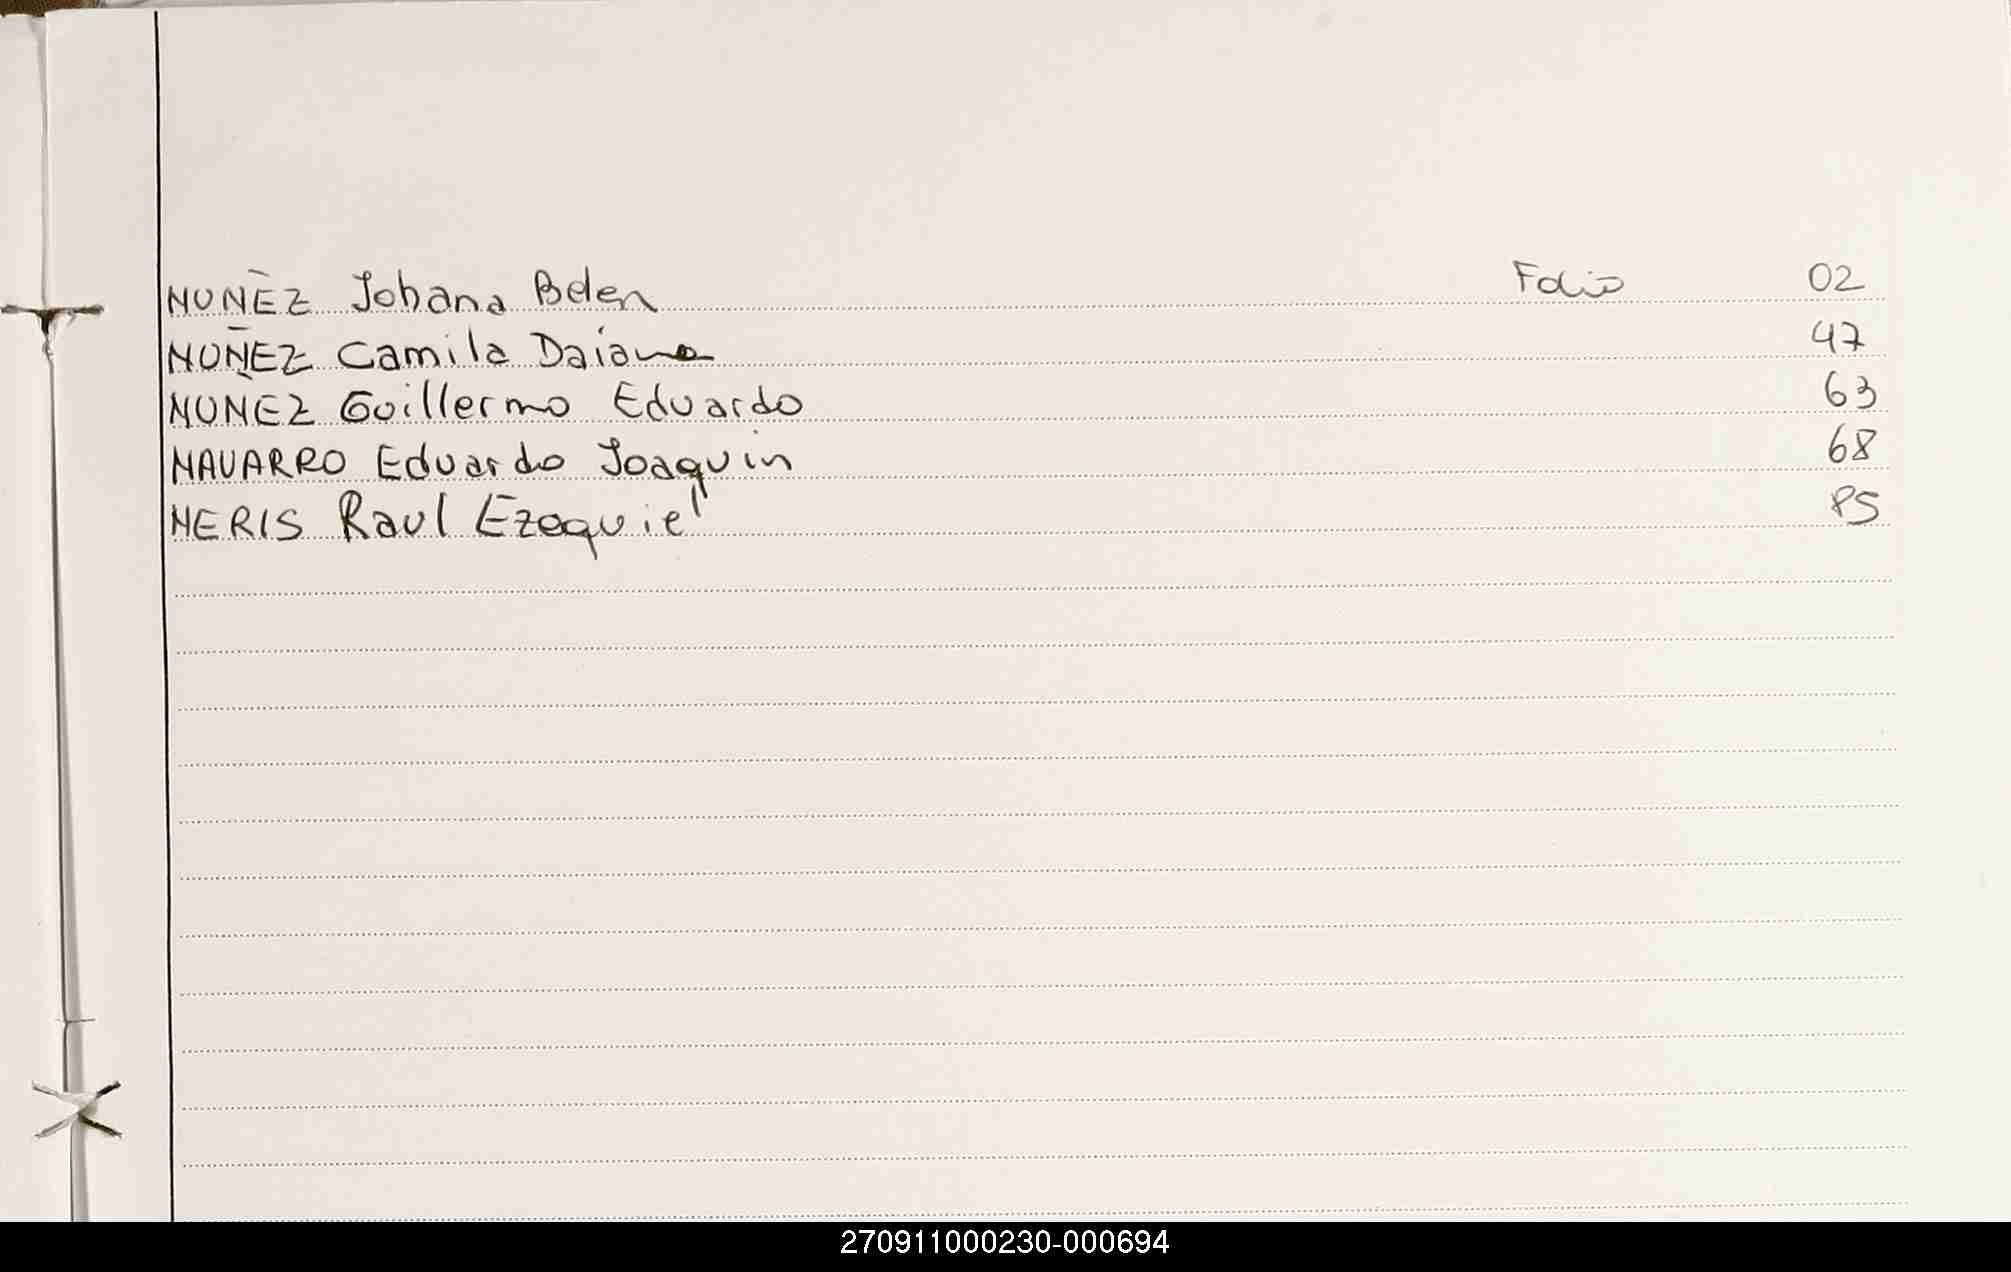 NUÑEZ Johana Belen Folio 02
NUÑEZ Camila Daiana 47
NUÑEZ Guillermo Eduardo 63
NAVARRO Eduardo Joaquin 68
NERIS Raul Ezequiel 85
270911000230-000694